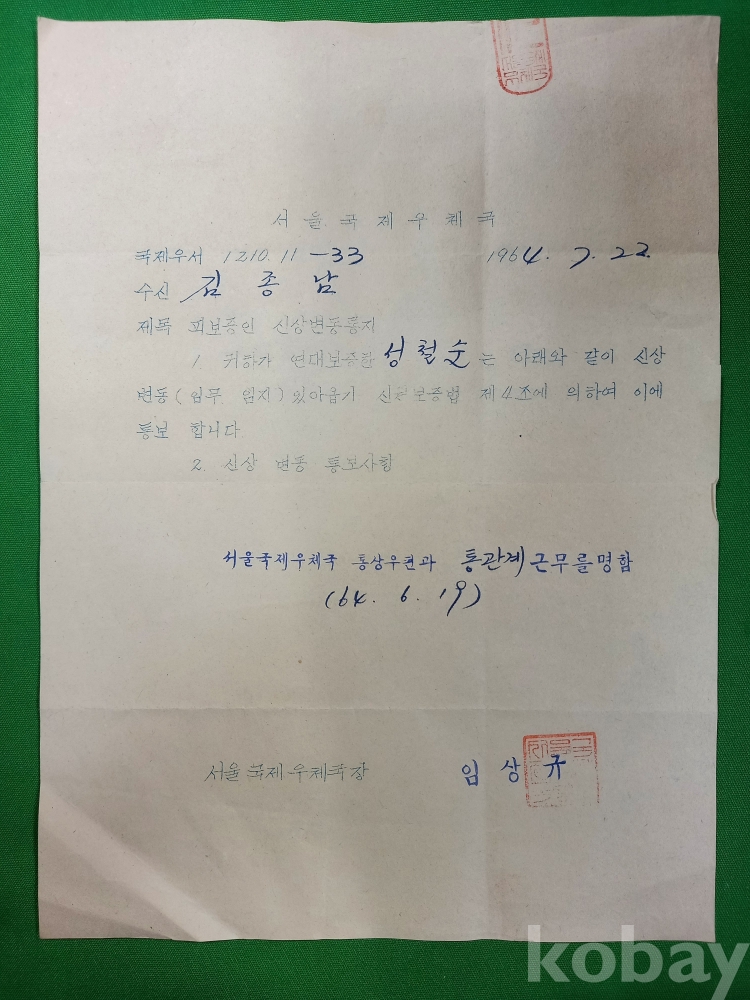 서울국제우체국
국제우서 1210.11 -33 1964. 7. 22.
수신 김종남
제목 피보증인 신상변동통지
1. 귀하가 연대보증한 성철순는 아래와 같이 신상
변동(임무 임지) 있아옵기 신원보증법 제4조에 의하여 이에
통보 합니다
2. 신상 변동 통보사항
서울국제우체국 통상우편과 통관계 근무를 명함
(64. 6. 19)
서울국제우체국장 임상규
kobay